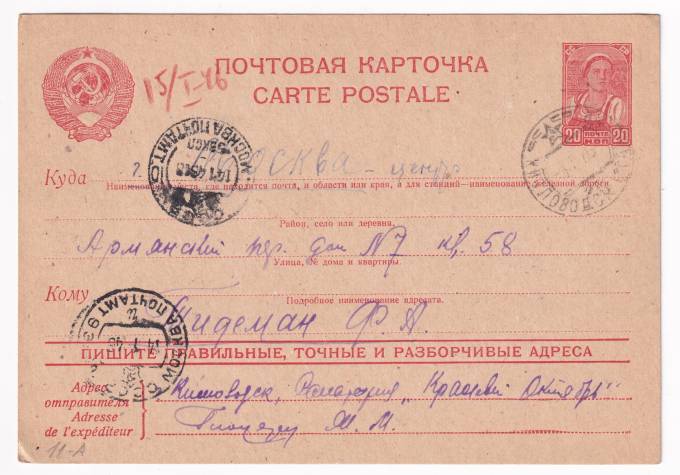 ПОЧТОВАЯ КАРТОЧКА
CARTE POSTALE
15/I-46
20 ПОЧТА 20
КОП
МОСКВА ПОЧТАМТ
Куда г. Москва - центр
Наименование места, где находится почта, и области или края, а для станций—наименование железной дороги
Район, село или деревня.
Армянский пер. дом N7 кв. 58
Улица, № дома и квартиры.
Кому
Подробное наименование адресата.
Тидеман Ф. А.
МОСКВА ПОЧТАМТ 9
ПИШИТЕ ПРАВИЛЬНЫЕ, ТОЧНЫЕ И РАЗБОРЧИВЫЕ АДРЕСА
Адрес отправителя
Adresse de l'expéditeur
Кисловодск, Санаторий „Красный Октябрь"
М. М.
11-А